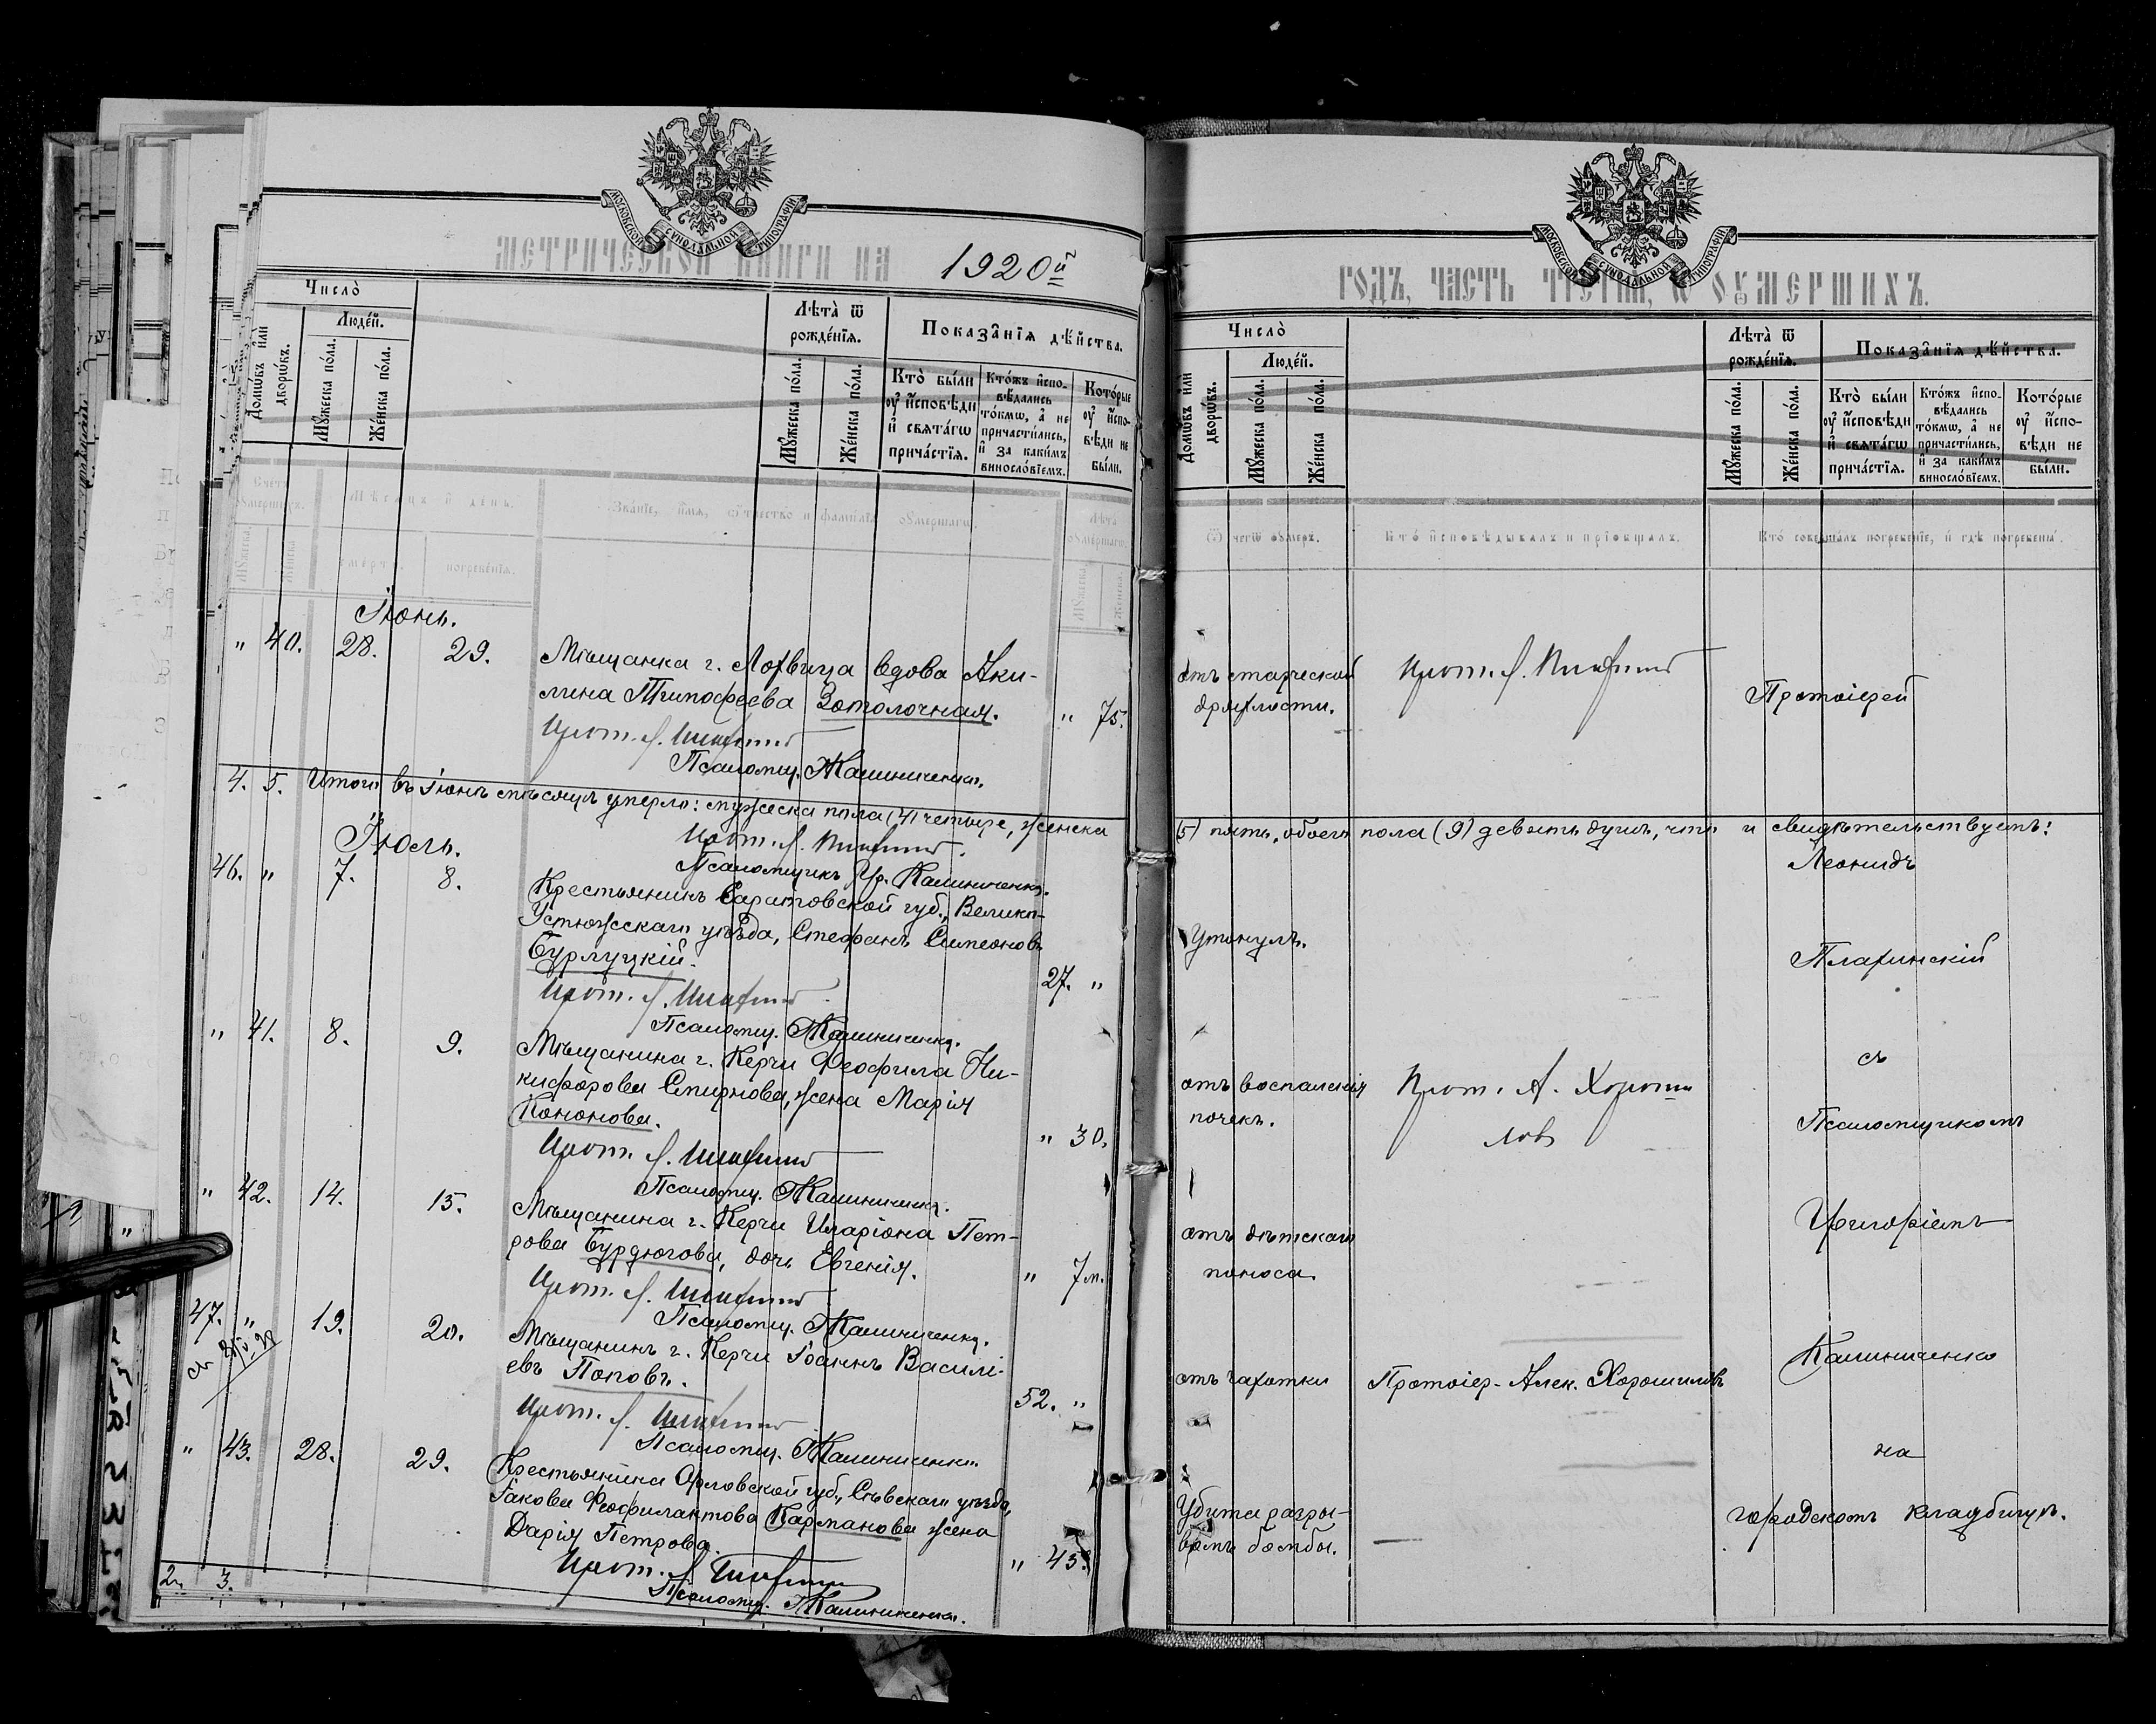 МОСКОВСКОЙ СУНОДАЛЬНОЙ ТИПОГРАФІИ
МЕТРИЧЕСКОЙ КНИГИ НА 1920й
Число̀
Домѡ́въ и҆лѝ дворѡ́въ.
Люде́й.
Мꙋ́жеска по́ла.
Же́нска по́ла.
Лѣ́та ѿ рожде́нїѧ.
Мꙋ́жеска по́ла.
Же́нска по́ла.
Показа̑нїѧ дѣ́йства.
Кто̀ бы́ли
ᲂу҆ и҆́сповѣди
и҆ свѧта́гѡ
прича́стїѧ.
Кто́жъ и҆спо-
вѣ́дались
то́кмѡ, а҆ не
причасти́лись,
и҆ за каки́мъ
виносло́вїемъ.
Кото́рые
ᲂу҆ и҆́спо-
вѣди не
бы́ли.
Мѣсяцъ и день.
Званіе, имя, отчество и фамилія умершаго.
Лѣта умершаго.
смерти.
погребенія.
Іюнь.
" 40. 28. 29. Мѣщанка г. Лохвица вдова Аки-
лина Тимофеева Зотолочная. " 75.
Прот. Л.
Псаломщ. Калиниченко.
4. 5. Итого въ Іюнѣ мѣсяцѣ умерло: мужеска пола (4) четыре, женска
Прот. Л.
Псаломщикъ Гр. Калиниченко.
Іюль.
46. " 7. 8. Крестьянинъ Саратовской губ., Велико-
Устюжскаго уѣзда, Стефанъ Симеоновъ
Бурлуцкій. 27. "
Прот. Л.
Псаломщ. Калиниченко.
" 41. 8. 9. Мѣщанина г. Керчи Феофила Ни-
кифорова Смирнова, жена Марія
Кононова. " 30.
Прот. Л.
Псаломщ. Калиниченко.
" 42. 14. 15. Мѣщанина г. Керчи Иларіона Пет-
рова Бурдюгова, дочь Евгенія. " 7 м.
Прот. Л.
Псаломщ. Калиниченко.
47. " 19. 20. Мѣщанинъ г. Керчи Іоаннъ Василі-
евъ Поповъ. 52. "
Прот. Л.
Псаломщ. Калиниченко.
" 43. 28. 29. Крестьянина Орловской губ., Сѣвскаго уѣзда,
Іакова Феофилактова Карманова жена
Дарія Петрова. " 45.
Прот. Л.
Псаломщ. Калиниченко.
2. 3.
МОСКОВСКОЙ СУНОДАЛЬНОЙ ТИПОГРАФІИ
ГОДЪ, ЧАСТЬ ТРЕТІЯ, Ѡ ОУМЕРШИХЪ.
Число̀
Домѡ́въ и҆лѝ дворѡ́въ.
Люде́й.
Мꙋ́жеска по́ла.
Же́нска по́ла.
Лѣ́та ѿ рожде́нїѧ.
Мꙋ́жеска по́ла.
Же́нска по́ла.
Показа̑нїѧ дѣ́йства.
Кто̀ бы́ли
ᲂу҆ и҆́сповѣди
и҆ свѧта́гѡ
прича́стїѧ.
Кто́жъ и҆спо-
вѣ́дались
то́кмѡ, а҆ не
причасти́лись,
и҆ за каки́мъ
виносло́вїемъ.
Кото́рые
ᲂу҆ и҆́спо-
вѣди не
бы́ли.
Ѿ чегѡ умеръ.
Кто исповѣдывалъ и пріобщалъ.
Кто совершалъ погребеніе, и гдѣ погребены.
отъ старческой
дряхлости.
Прот. Л.
Протоіерей
(5) пять, обоего пола (9) девять душъ, что и свидѣтельствуемъ:
Леонидъ
Утонулъ.
Плахинскій
съ
отъ воспаленія
почекъ.
Прот. А. Хороши
ловъ
Псаломщикомъ
отъ дѣтскаго
поноса.
Григоріемъ
Калиниченко
отъ чахотки
Протоіер. Алек. Хорошиловъ
на
Убита разры-
вомъ бомбы.
—
городскомъ кладбищѣ.